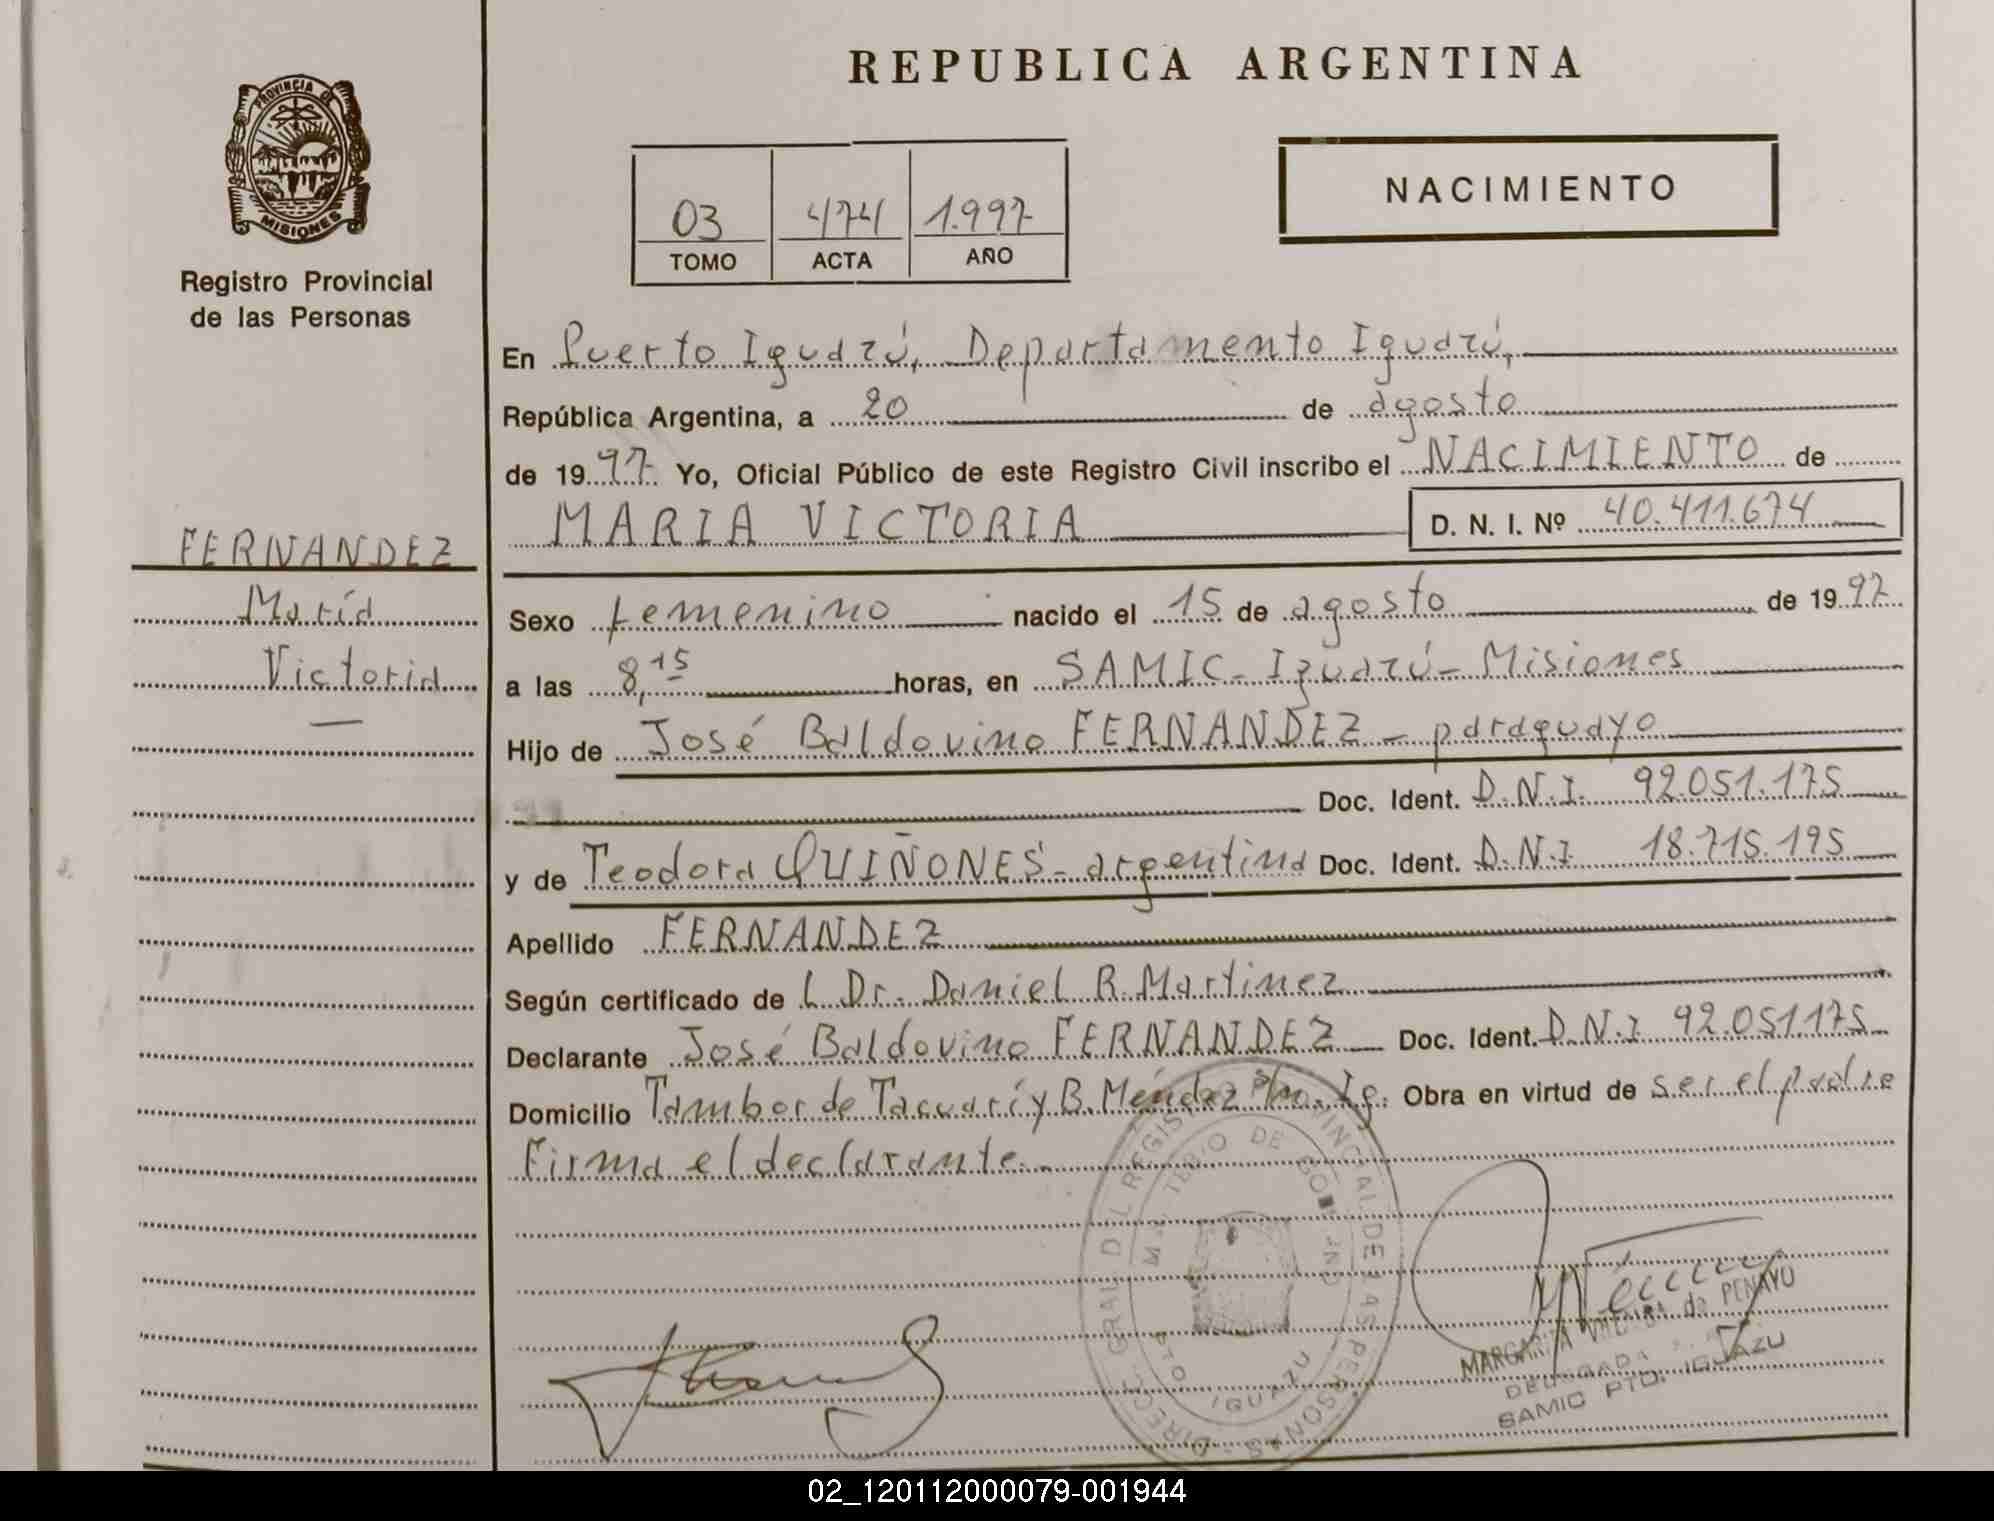 REPUBLICA ARGENTINA
PROVINCIA DE
MISIONES
Registro Provincial
de las Personas
03 474 1.997
TOMO ACTA AÑO
NACIMIENTO
FERNANDEZ
María
Victoria
En Puerto Iguazú, Departamento Iguazú,
República Argentina, a 20 de agosto
de 1997 Yo, Oficial Público de este Registro Civil inscribo el NACIMIENTO de
MARIA VICTORIA D. N. I. Nº 40.411.674
Sexo femenino nacido el 15 de agosto de 1997
a las 8,15 horas, en SAMIC- Iguazú- Misiones
Hijo de José Baldovino FERNANDEZ - paraguayo
Doc. Ident. D.N.I. 92.051.175
y de Teodora QUIÑONES- argentina Doc. Ident. D.N.I 18.715.195
Apellido FERNANDEZ
Según certificado de l Dr. Daniel R. Martinez
Declarante José Baldovino FERNANDEZ Doc. Ident. D.N.I 92.051.175
Domicilio Tambor de Tacuarí y B. Méndez s/n. Ig. Obra en virtud de ser el padre
Firma el declarante.-
MARGARITA de PENAYO
DELEGADA
SAMIC PTO. IGUAZU
02_120112000079-001944